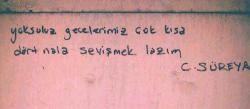 yoksuluz gecelerimiz çok kısa
dört nala sevişmek lazım
C. SÜREYA